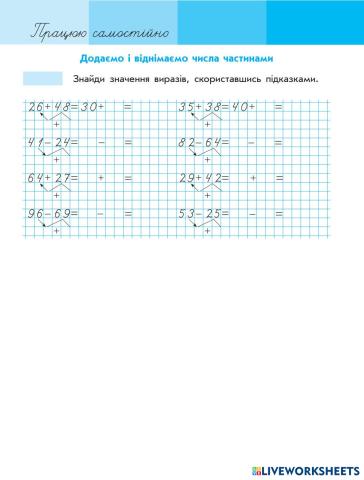 Працюю самостійно
Додаємо і віднімаємо числа частинами
Знайди значення виразів, скориставшись підказками.
26+48=30+ = 35+38=40+ =
+ +
41-24= - = 82-64= - =
+ +
64+27= + = 29+42= + =
+ +
96-69= - = 53-25= - =
+ +
LIVEWORKSHEETS